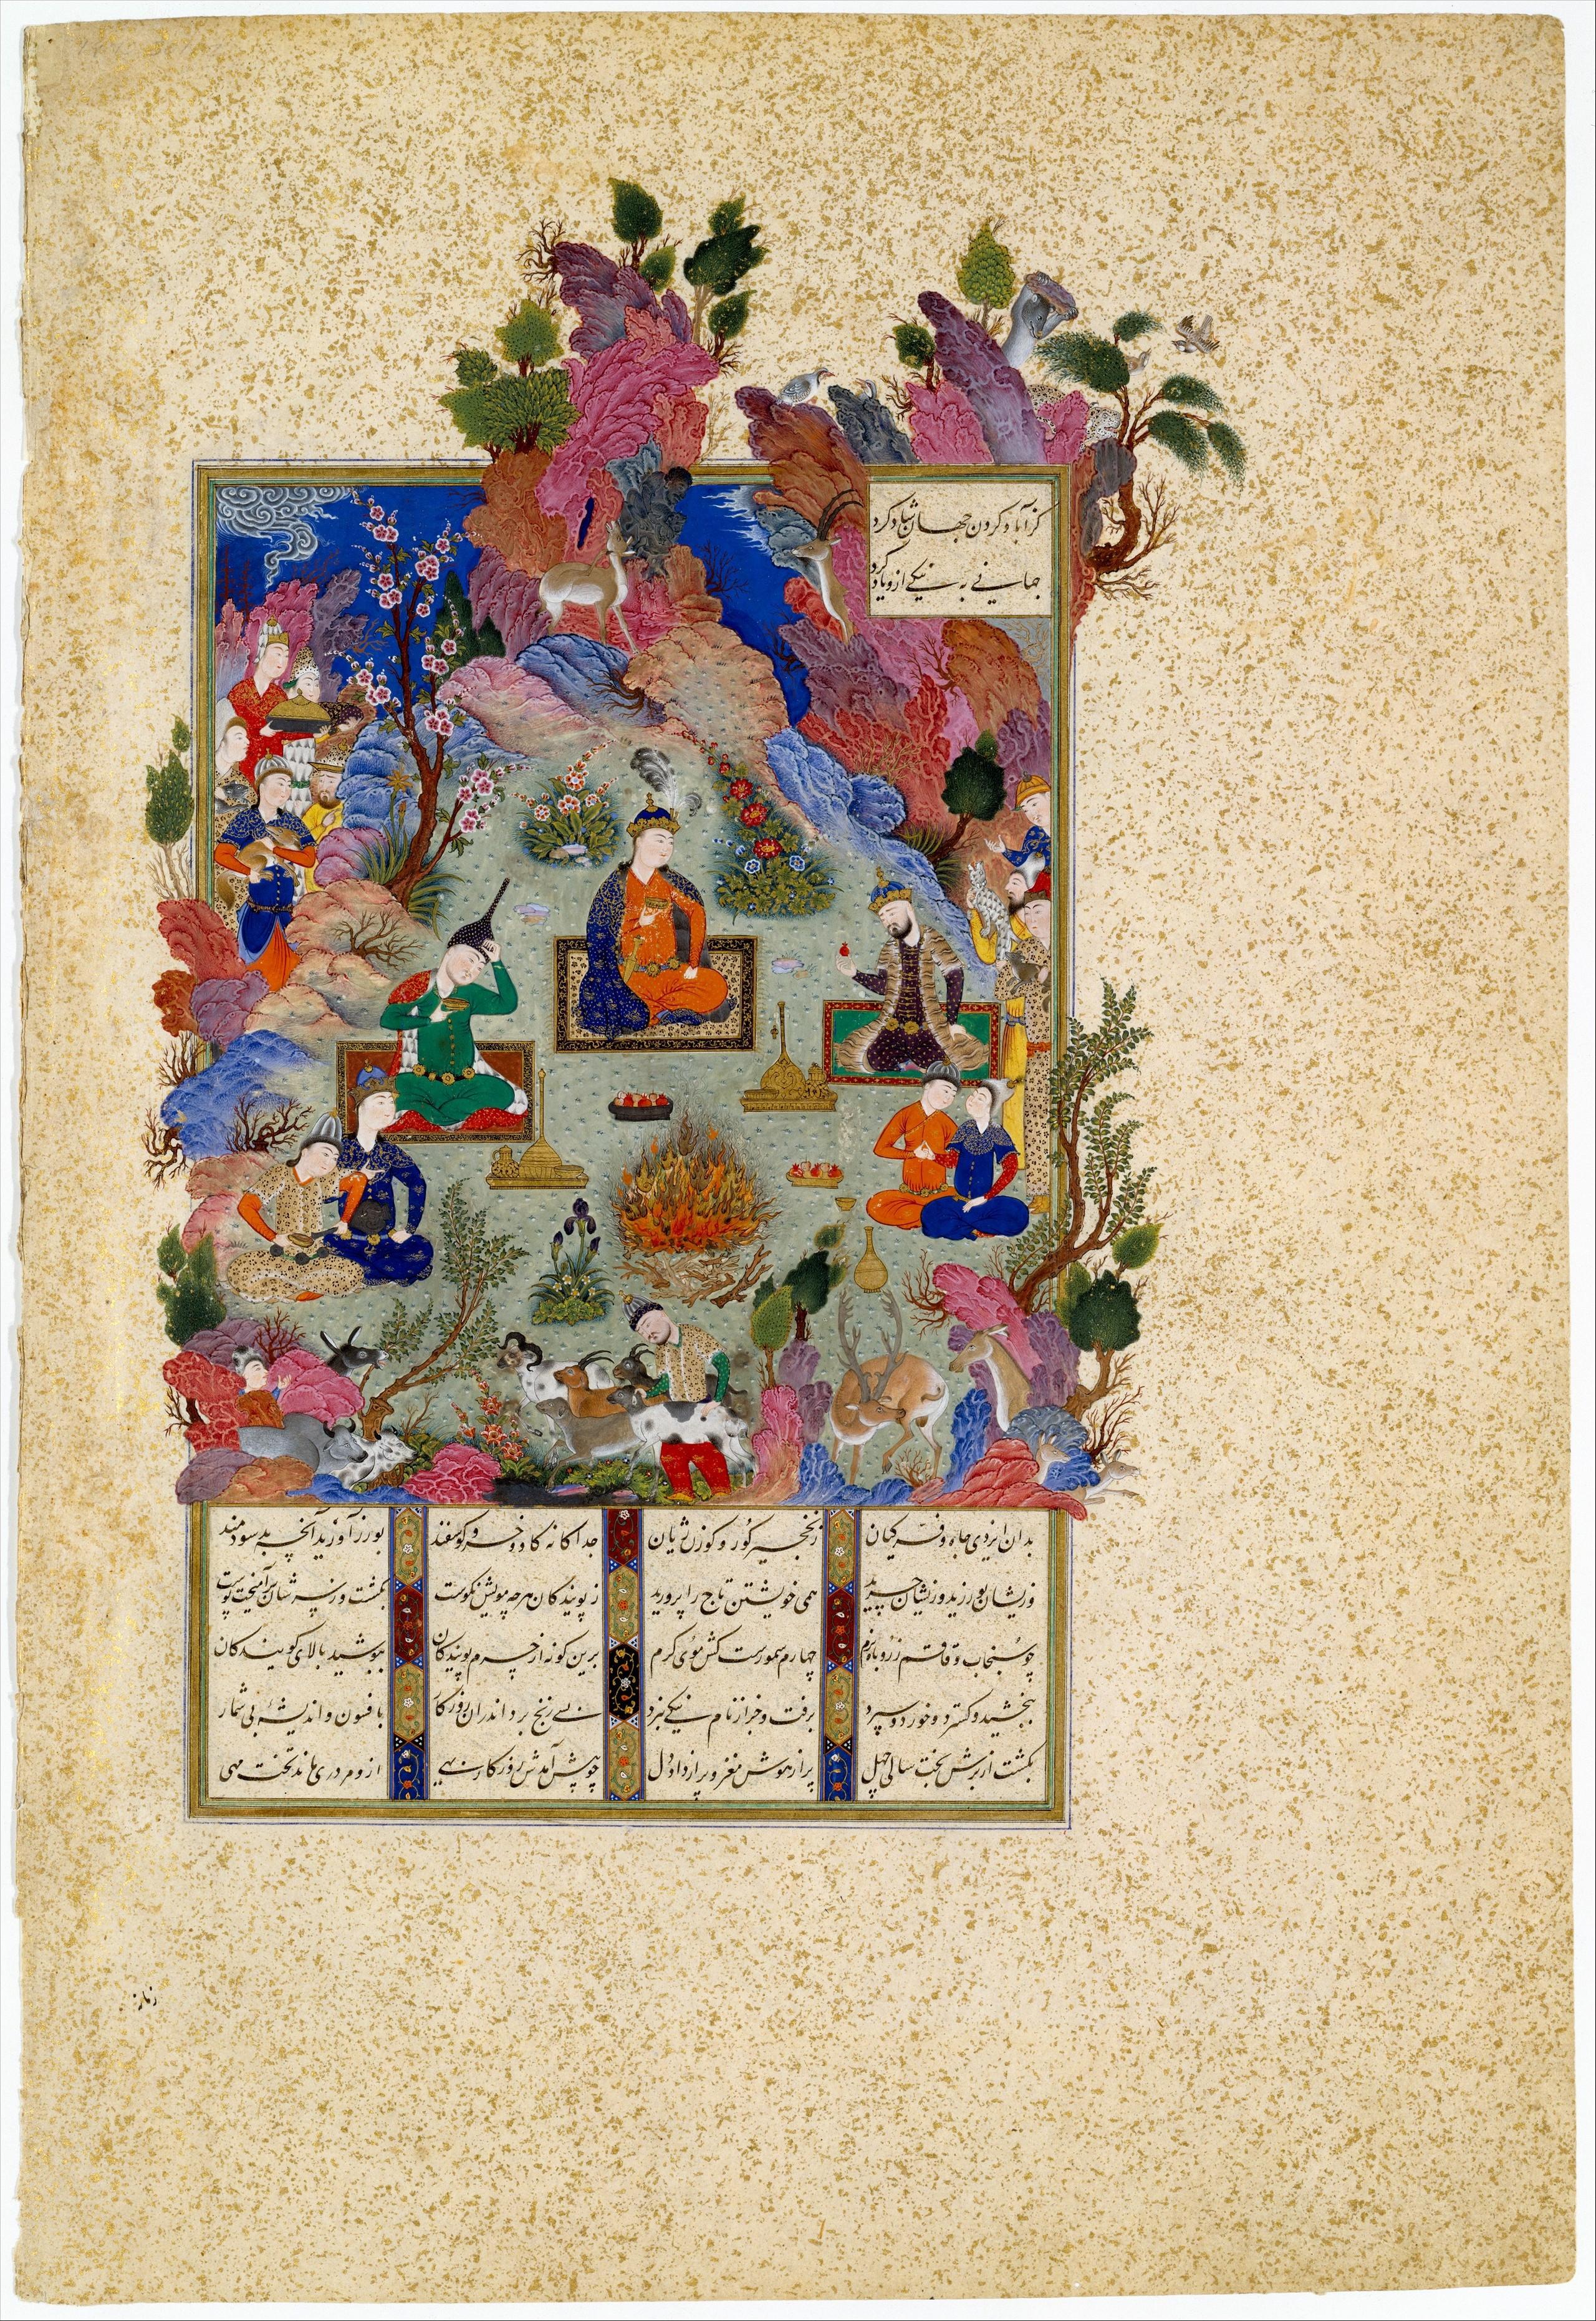 کز آباد کردن جهان شاد کرد
جهانی به نیکی ازو یاد کرد
بدان ایزدی جاه و فر کیان ز نخجیر کور و کوزن ژیان جدا کانه کاو و خر و کوسفند بورز آورید آنچه بد سودمند
وزیشان بورزید وزیشان چرید همی خویشتن تاج را پرورید ز پویندکان هرچه مویش نکوست بکشت وز سرشان برآمیخت پوست
چو سنجاب و قاقم ز روباه نرم چهارم سمورست کش موی کرم برین کونه از چرم پویندکان بپوشید بالای کویندکان
ببخشید و کسترد و خورد و سپرد برفت و جز از نام نیکی نبرد بسی رنج برد اندران روزکار بافسون و اندیشهٔ بی شمار
بکشت از برش بخت سالی چهل پر از هوش مغز و پر از داد دل چو پیش آمدش روزکار بهی ازو مردری ماند تخت مهی